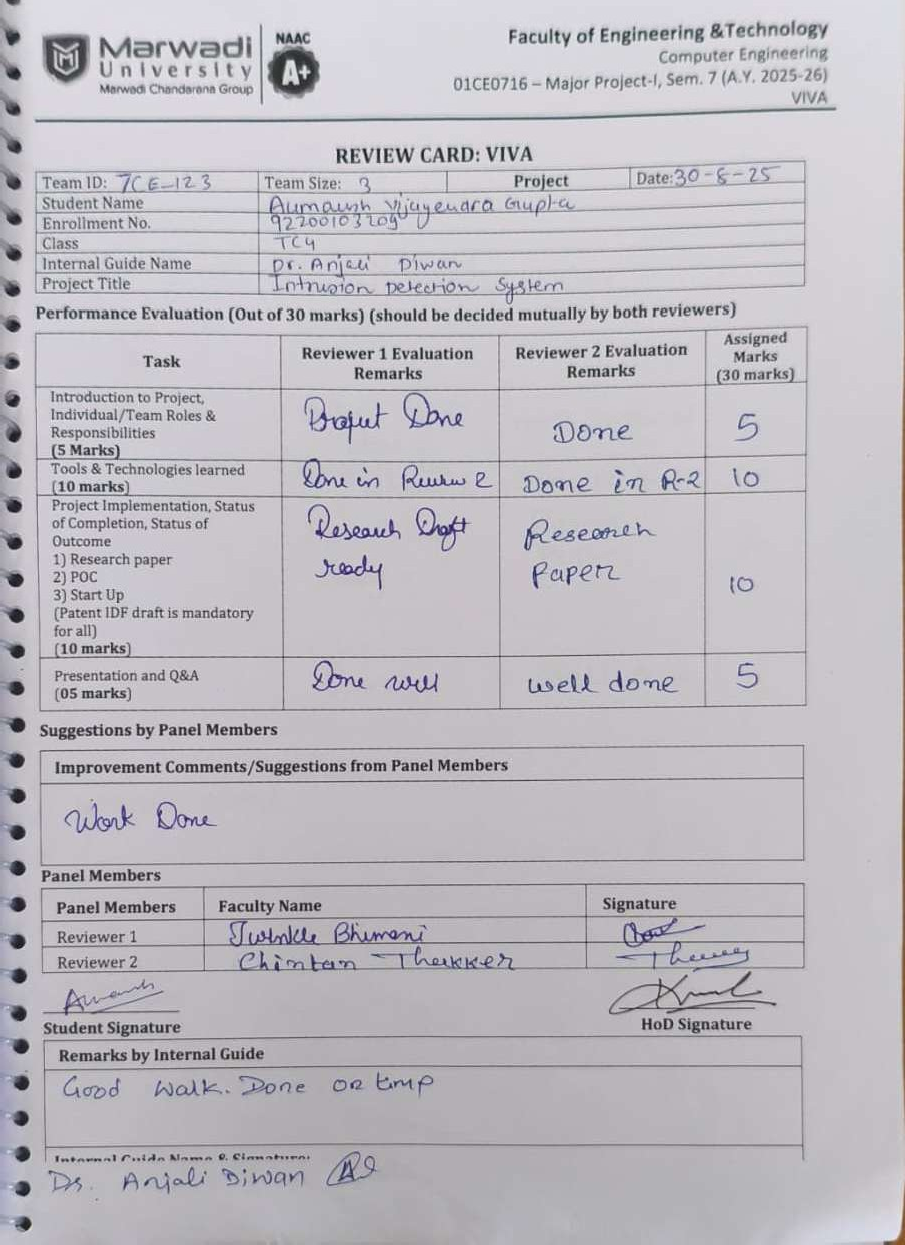 Marwadi University
Marwadi Chandarana Group
NAAC
A+
Faculty of Engineering &Technology
Computer Engineering
01CE0716 – Major Project-I, Sem. 7 (A.Y. 2025-26)
VIVA
REVIEW CARD: VIVA
Team ID: 7CE-123 Team Size: 3 Project Date: 30-8-25
Student Name Aumaush Vijayendra Gupta
Enrollment No. 92200103209
Class TC4
Internal Guide Name Dr. Anjali Diwan
Project Title Intrusion Detection System
Performance Evaluation (Out of 30 marks) (should be decided mutually by both reviewers)
Task
Reviewer 1 Evaluation Remarks
Reviewer 2 Evaluation Remarks
Assigned Marks (30 marks)
Introduction to Project,
Individual/Team Roles &
Responsibilities
(5 Marks)
Project Done
Done
5
Tools & Technologies learned
(10 marks)
Done in Review 2
Done in R-2
10
Project Implementation, Status
of Completion, Status of
Outcome
1) Research paper
2) POC
3) Start Up
(Patent IDF draft is mandatory
for all)
(10 marks)
Research Draft
ready
Research
Paper
10
Presentation and Q&A
(05 marks)
Done well
well done
5
Suggestions by Panel Members
Improvement Comments/Suggestions from Panel Members
Work Done
Panel Members
Panel Members Faculty Name Signature
Reviewer 1 Twinkle Bhimani
Reviewer 2 Chintan Thakker
Student Signature
HoD Signature
Remarks by Internal Guide
Good Walk. Done on time
Internal Guide Name & Signature:
Ds. Anjali Diwan